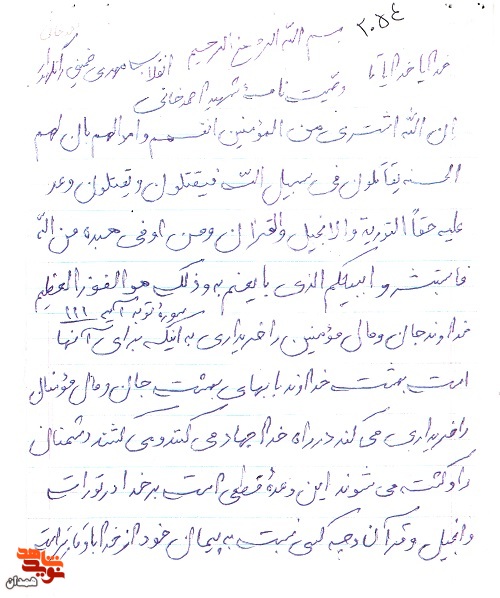 ۲۰۵٤
بسم الله الرحمن الرحیم
خدایا خدایا تا انقلاب مهدی خمینی را نگهدار
وصیت نامه شهید احمد خانی
ان الله اشتری من المؤمنین انفسهم و اموالهم بان لهم
الجنه یقاتلون فی سبیل الله فیقتلون و یقتلون وعد
علیه حقاً التوریة والانجیل والقران ومن اوفی بعهده من الله
فاستبشروا ببیعکم الذی بایعتم به وذلک هو الفوز العظیم
سوره توبه آیه ۱۱۱
خداوند جان و مال مؤمنین را خریداری به اینکه برای آنها
است بهشت خداوند با بهای بهشت جان و مال مؤمنان
را خریداری می کند در راه خدا جهاد می کنند و می کشند دشمنان
را و کشته می شوند این وعدهٔ قطعی است بر خدا در تورات
و انجیل و قرآن و چه کسی نسبت به پیمان خود از خدا باوفاتر است
نوید شاهد
همدان